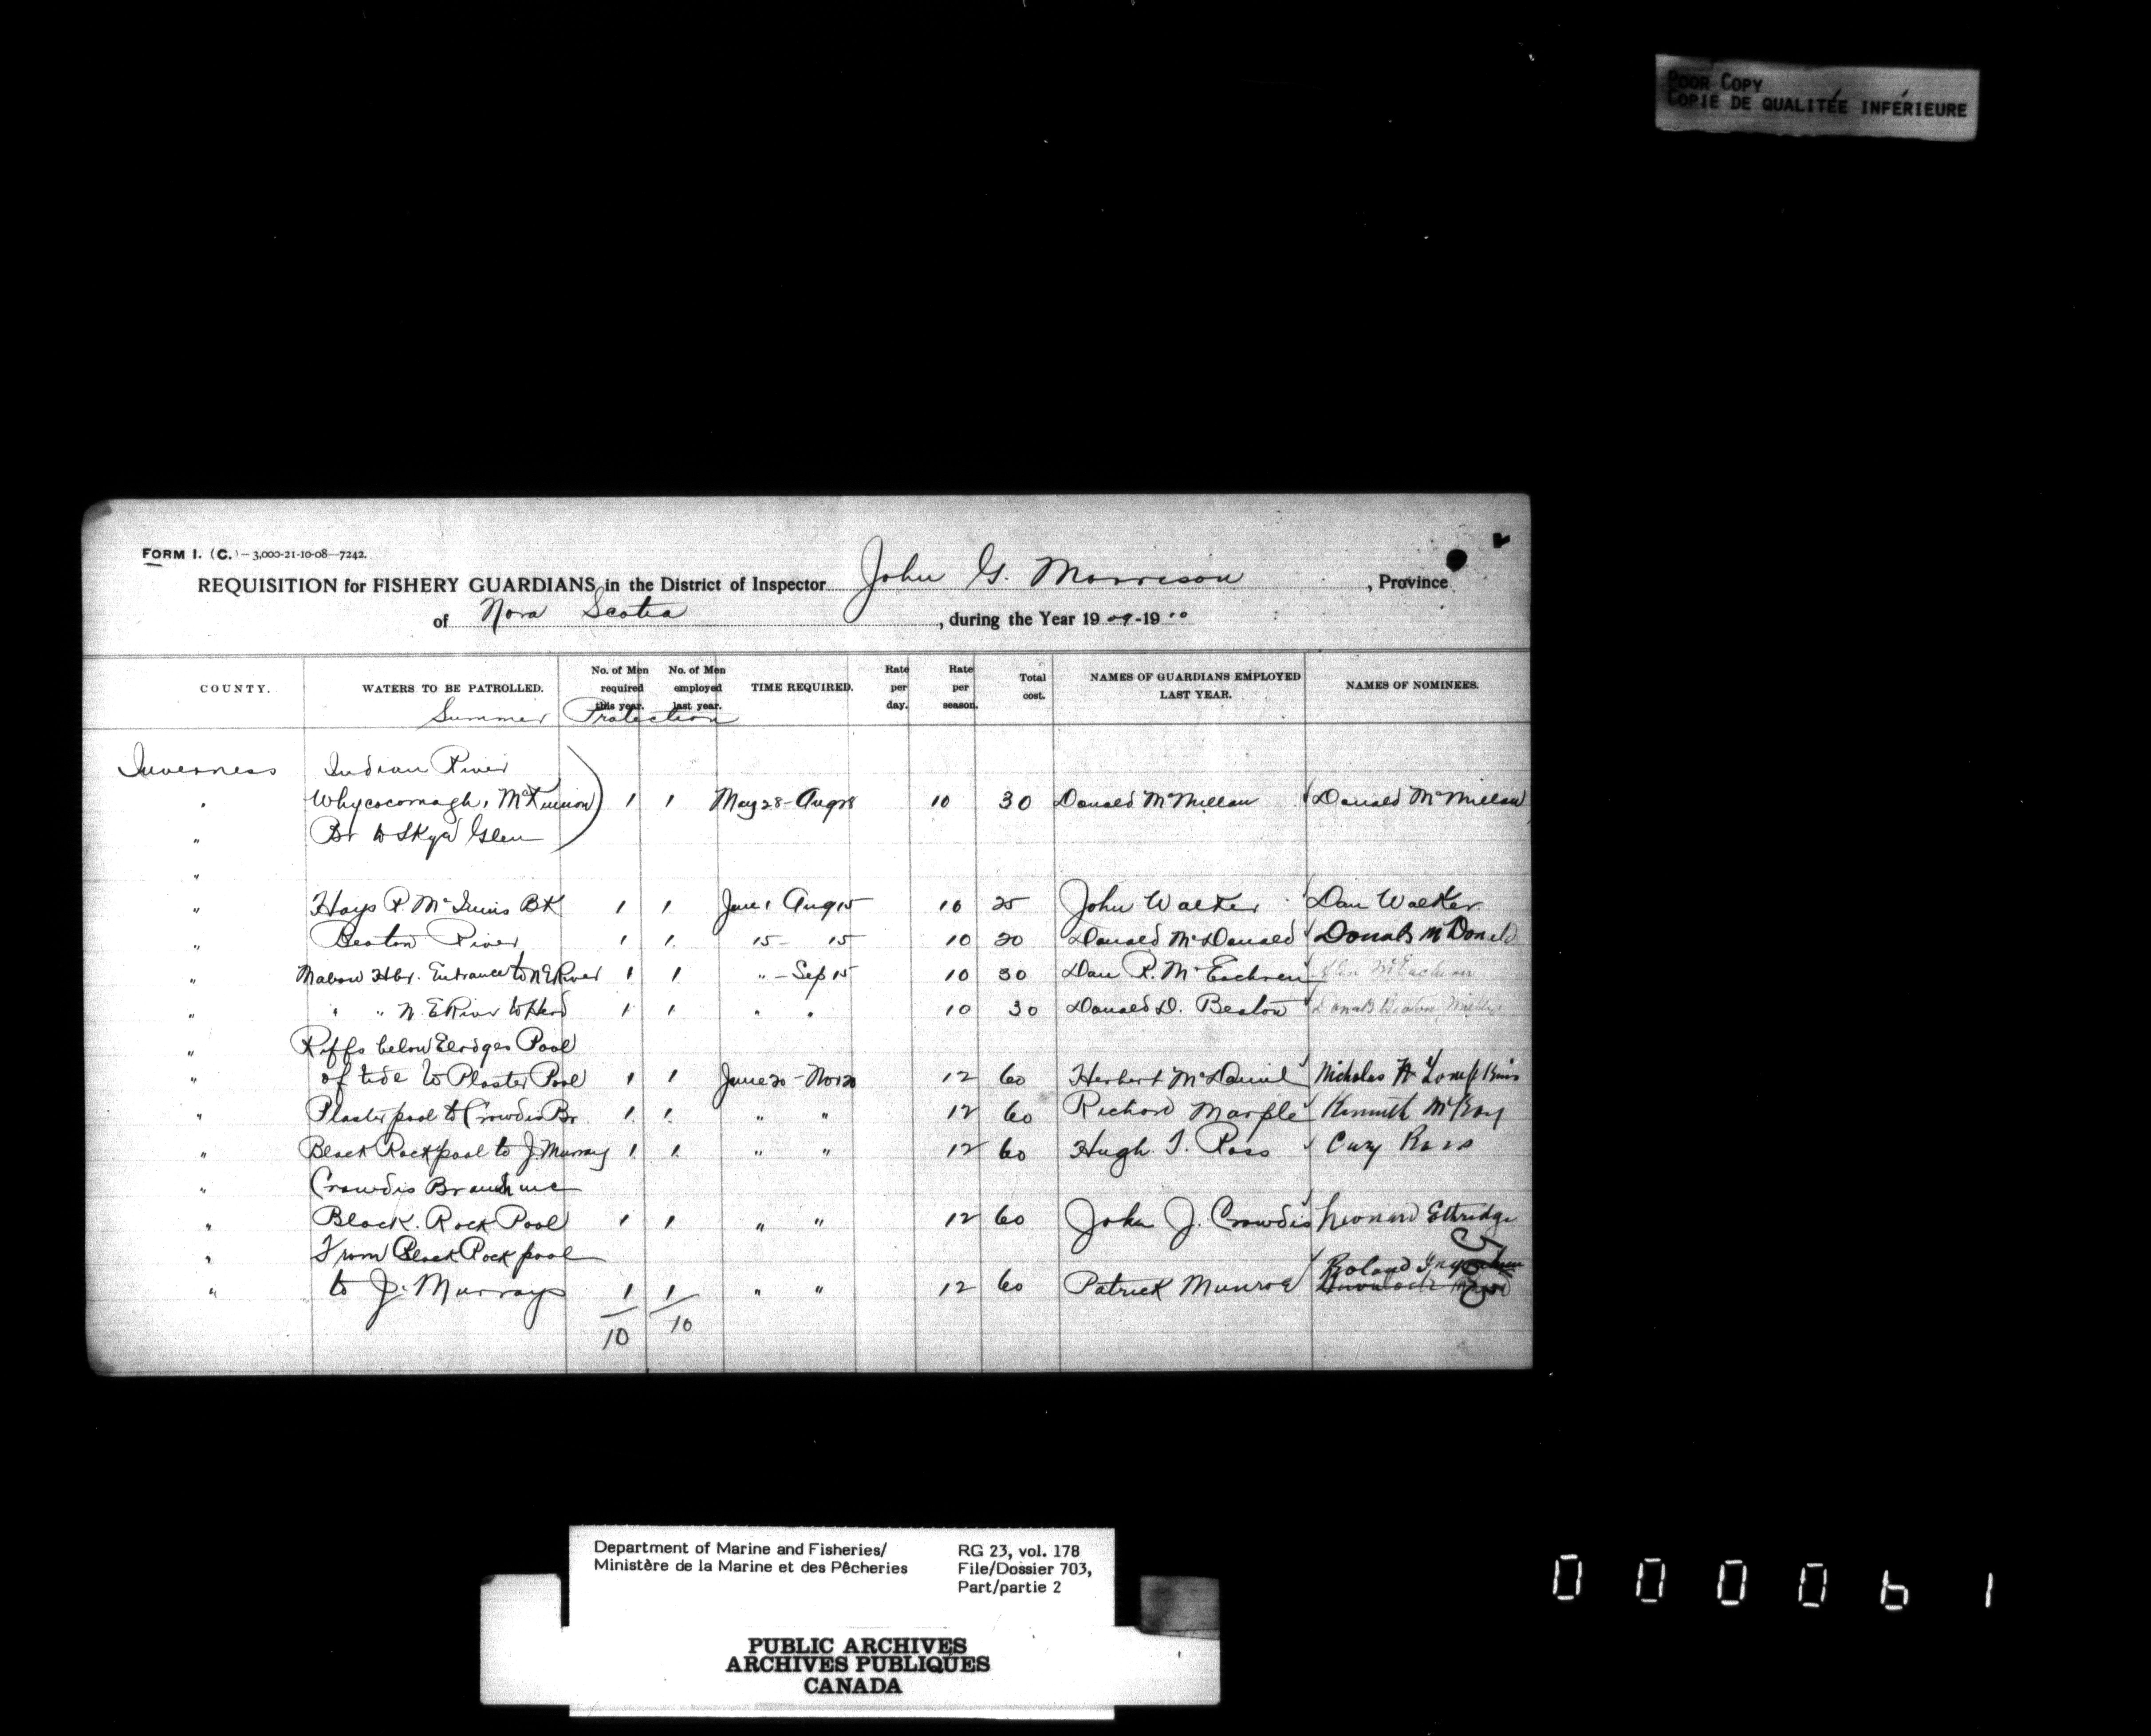 POOR COPY
COPIE DE QUALITÉE INFÉRIEURE
FORM 1. (C.)—3,000-21-10-08—7242.
REQUISITION for FISHERY GUARDIANS in the District of Inspector John G. Morrison, Province
of Nova Scotia, during the Year 1909-1910
COUNTY. WATERS TO BE PATROLLED. No. of Men required this year. No. of Men employed last year. TIME REQUIRED. Rate per day. Rate per season. Total cost. NAMES OF GUARDIANS EMPLOYED LAST YEAR. NAMES OF NOMINEES.
Summer Protection
Inverness Indian River
" Whycocomagh, McKinnon 1 1 May 28-Aug 28 10 30 Donald McMillan Donald McMillan
" Br to Skye Glen
"
" Hays R. McInnis BK 1 1 June 1 Aug 15 10 25 John Walker Dan Walker
" Beaton River 1 1 15 - 15 10 20 Donald McDonald Donald McDonald
" Mabou Hbr. Entrance to N E River 1 1 " - Sep 15 10 30 Dan R. McEachren McEachern
" " " N. E River to Head 1 1 " " 10 30 Donald D. Beaton Donald Beaton
" Riffs below Elodges Pool
" of tide to Plaster Pool 1 1 June 20 - Nov 20 12 60 Herbert McDaniel Nicholas H Tompkins
" Plaster pool to Crowdis Br. 1 1 " " 12 60 Richard Marple Kenneth McKay
" Black Rock pool to J. Murray 1 1 " " 12 60 Hugh T. Ross Ross
" Crowdis Branch
" Black Rock Pool 1 1 " " 12 60 John J. Crowdis Leonard Ethridge
" From Black Rock pool
" to J. Murrays 1 1 " " 12 60 Patrick Munroe Roland
10 10
Department of Marine and Fisheries/
Ministère de la Marine et des Pêcheries
RG 23, vol. 178
File/Dossier 703,
Part/partie 2
PUBLIC ARCHIVES
ARCHIVES PUBLIQUES
CANADA
000061